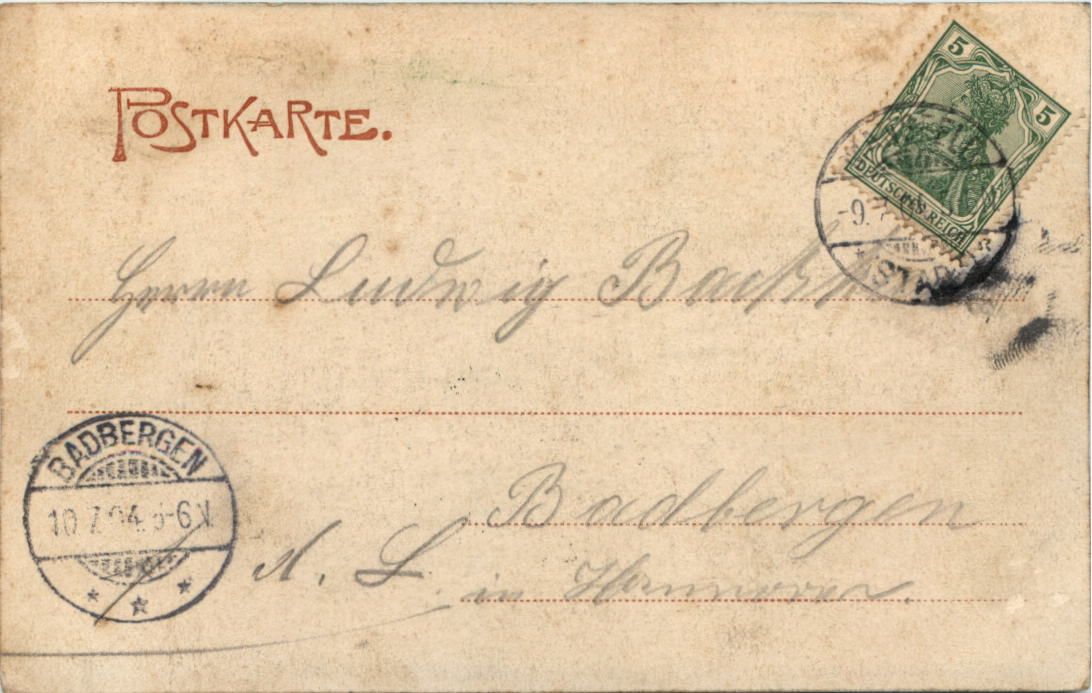 POSTKARTE.
5
5
DEUTSCHES REICH
-9.
STADT
Herrn Ludwig
BADBERGEN
10.7.04. 5-6 V.
Badbergen
in Hannover.